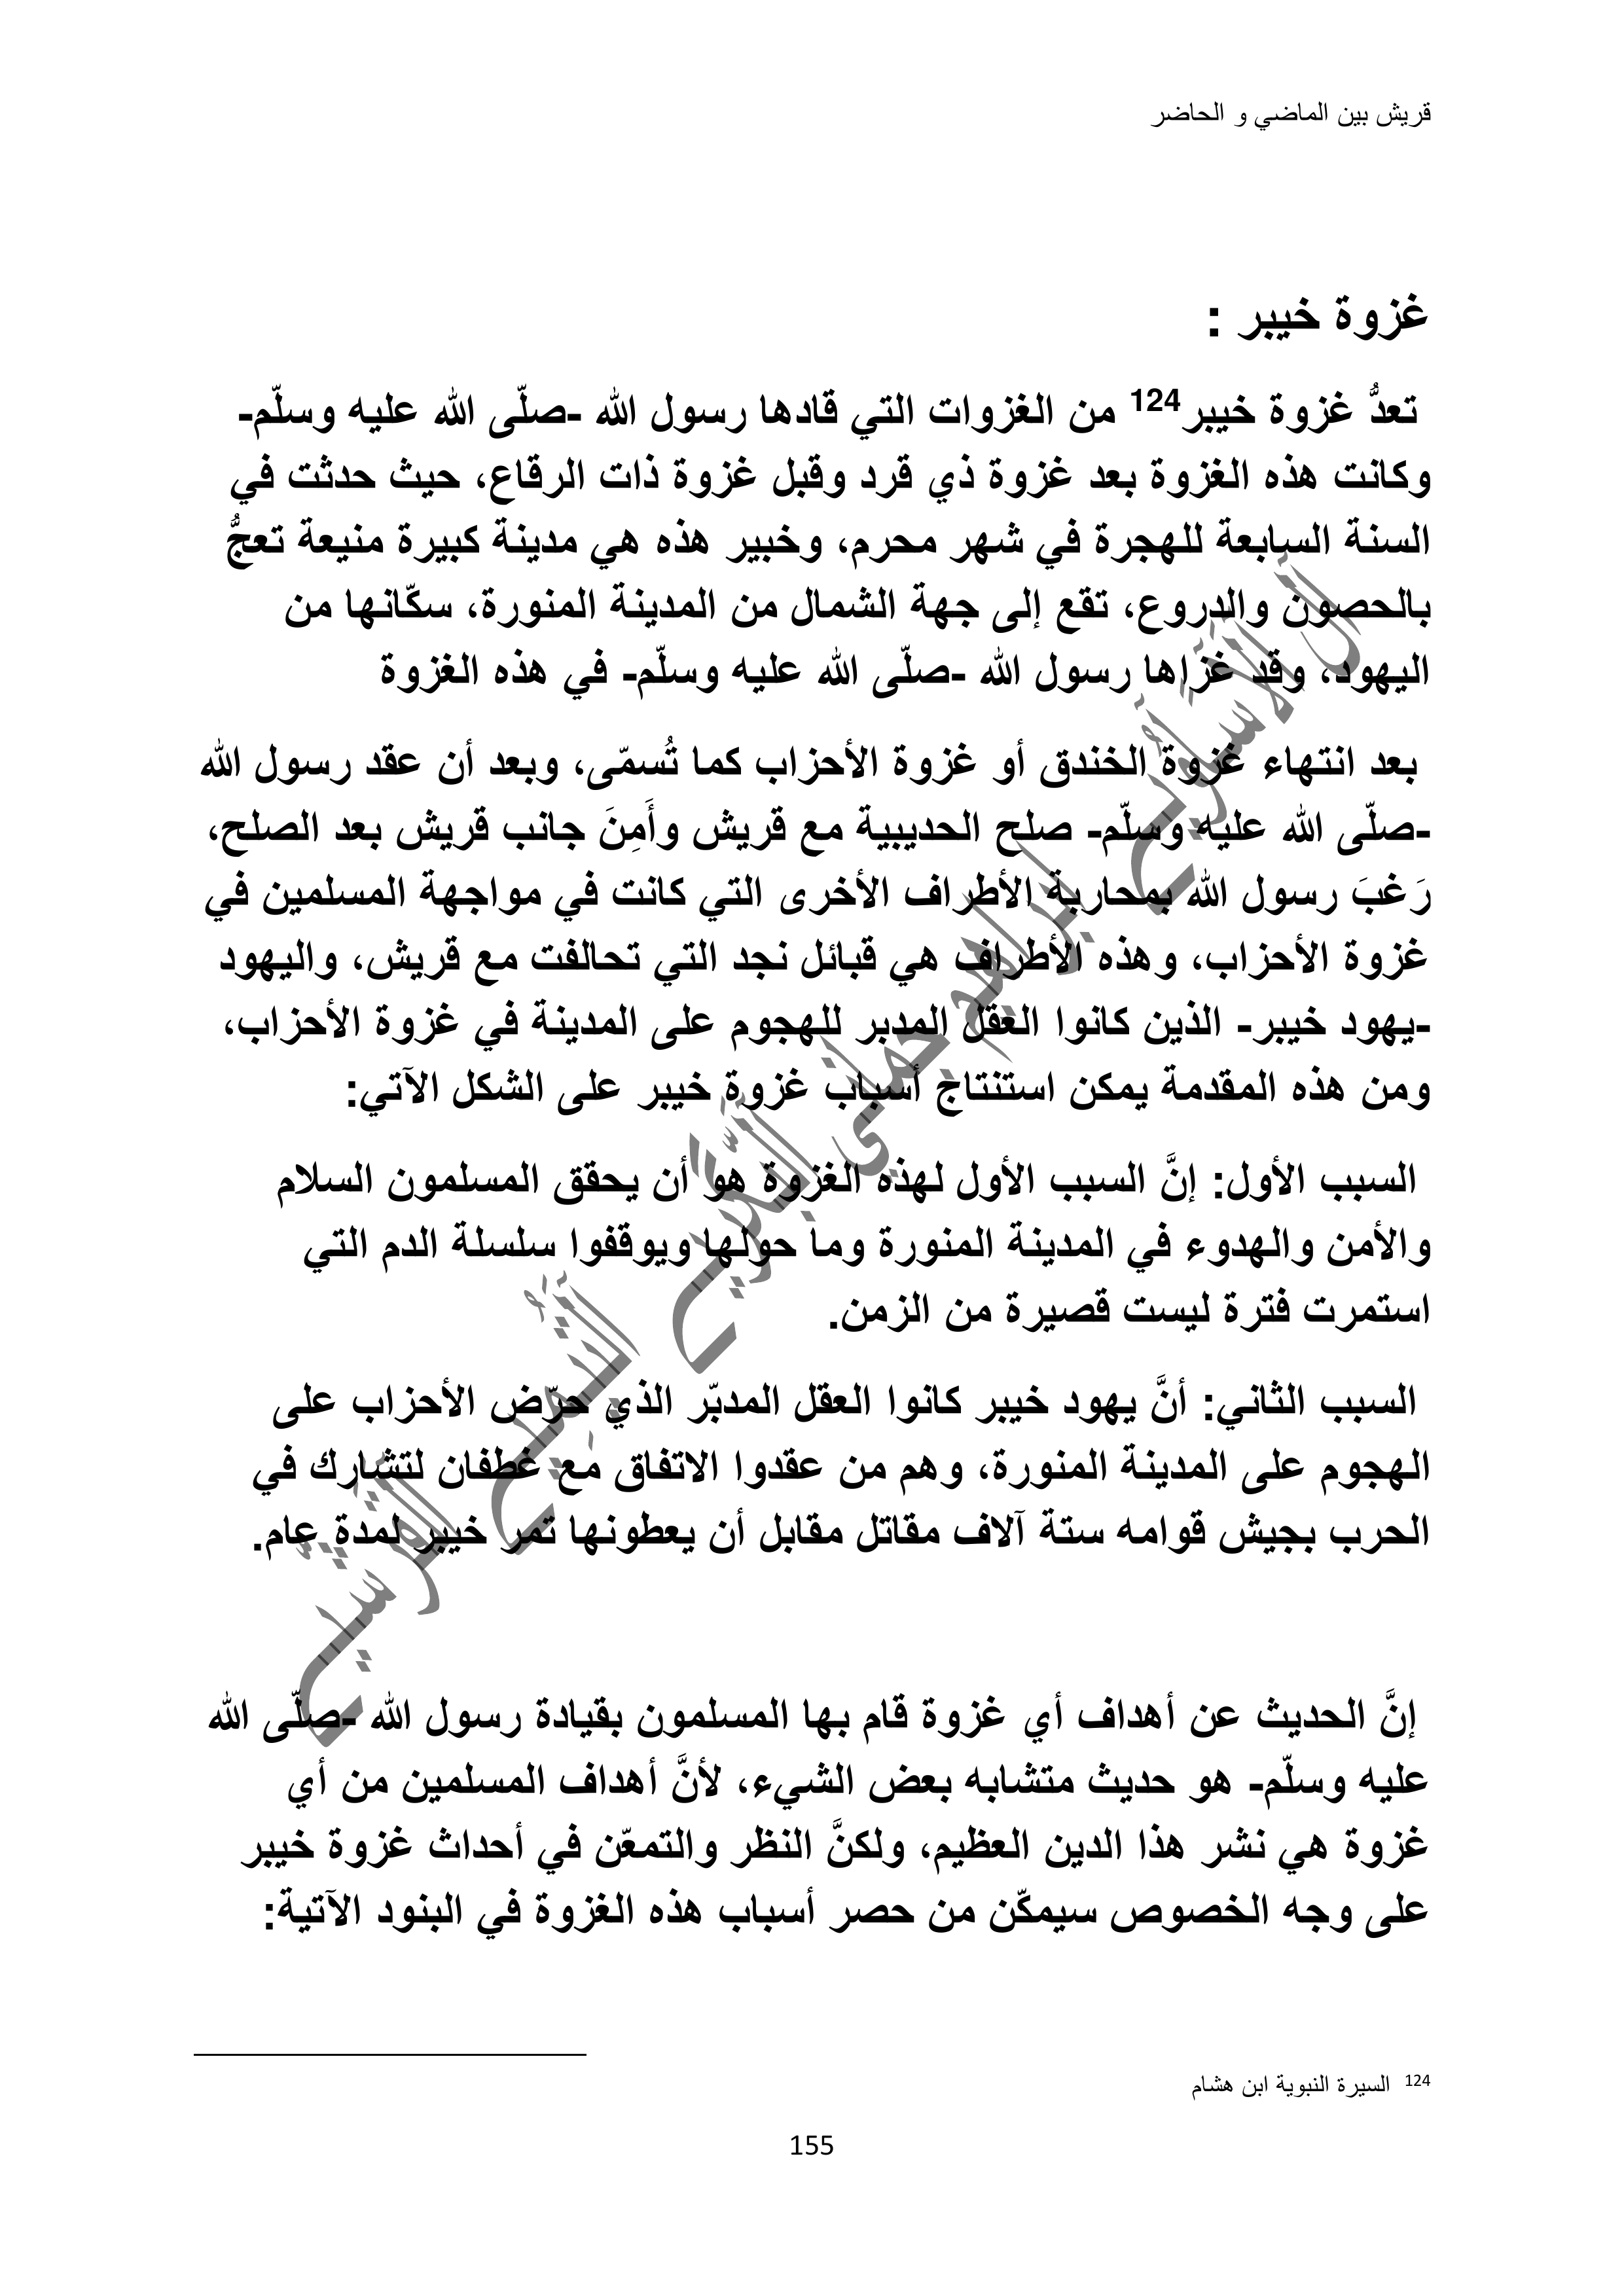 قريش بين الماضي و الحاضر
غزوة خيبر :
تعدُّ غزوة خيبر124 من الغزوات التي قادها رسول الله -صلّى الله عليه وسلّم-
وكانت هذه الغزوة بعد غزوة ذي قرد وقبل غزوة ذات الرقاع، حيث حدثت في
السنة السابعة للهجرة في شهر محرم، وخبير هذه هي مدينة كبيرة منيعة تعجُّ
بالحصون والدروع، تقع إلى جهة الشمال من المدينة المنورة، سكّانها من
اليهود، وقد غزاها رسول الله -صلّى الله عليه وسلّم- في هذه الغزوة
بعد انتهاء غزوة الخندق أو غزوة الأحزاب كما تُسمّى، وبعد أن عقد رسول الله
-صلّى الله عليه وسلّم- صلح الحديبية مع قريش وأَمِنَ جانب قريش بعد الصلح،
رَغبَ رسول الله بمحاربة الأطراف الأخرى التي كانت في مواجهة المسلمين في
غزوة الأحزاب، وهذه الأطراف هي قبائل نجد التي تحالفت مع قريش، واليهود
-يهود خيبر- الذين كانوا العقل المدبر للهجوم على المدينة في غزوة الأحزاب،
ومن هذه المقدمة يمكن استنتاج أسباب غزوة خيبر على الشكل الآتي:
السبب الأول: إنَّ السبب الأول لهذه الغزوة هو أن يحقق المسلمون السلام
والأمن والهدوء في المدينة المنورة وما حولها ويوقفوا سلسلة الدم التي
استمرت فترة ليست قصيرة من الزمن.
السبب الثاني: أنَّ يهود خيبر كانوا العقل المدبّر الذي حرّض الأحزاب على
الهجوم على المدينة المنورة، وهم من عقدوا الاتفاق مع غطفان لتشارك في
الحرب بجيش قوامه ستة آلاف مقاتل مقابل أن يعطونها تمر خيبر لمدة عام.
إنَّ الحديث عن أهداف أي غزوة قام بها المسلمون بقيادة رسول الله -صلّى الله
عليه وسلّم- هو حديث متشابه بعض الشيء، لأنَّ أهداف المسلمين من أي
غزوة هي نشر هذا الدين العظيم، ولكنَّ النظر والتمعّن في أحداث غزوة خيبر
على وجه الخصوص سيمكّن من حصر أسباب هذه الغزوة في البنود الآتية:
124 السيرة النبوية ابن هشام
155